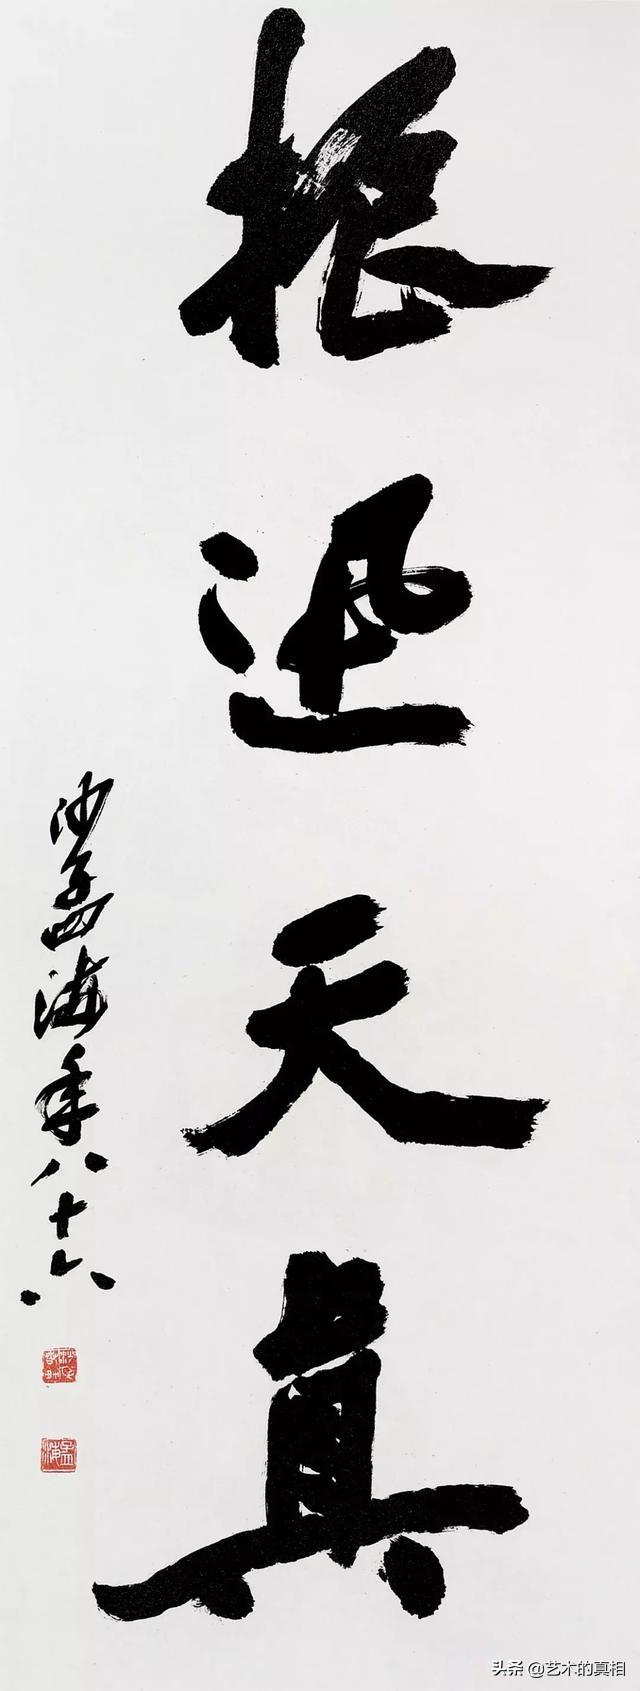 振迅天真
沙孟海年八十六
孟海
头条 @艺术的真相